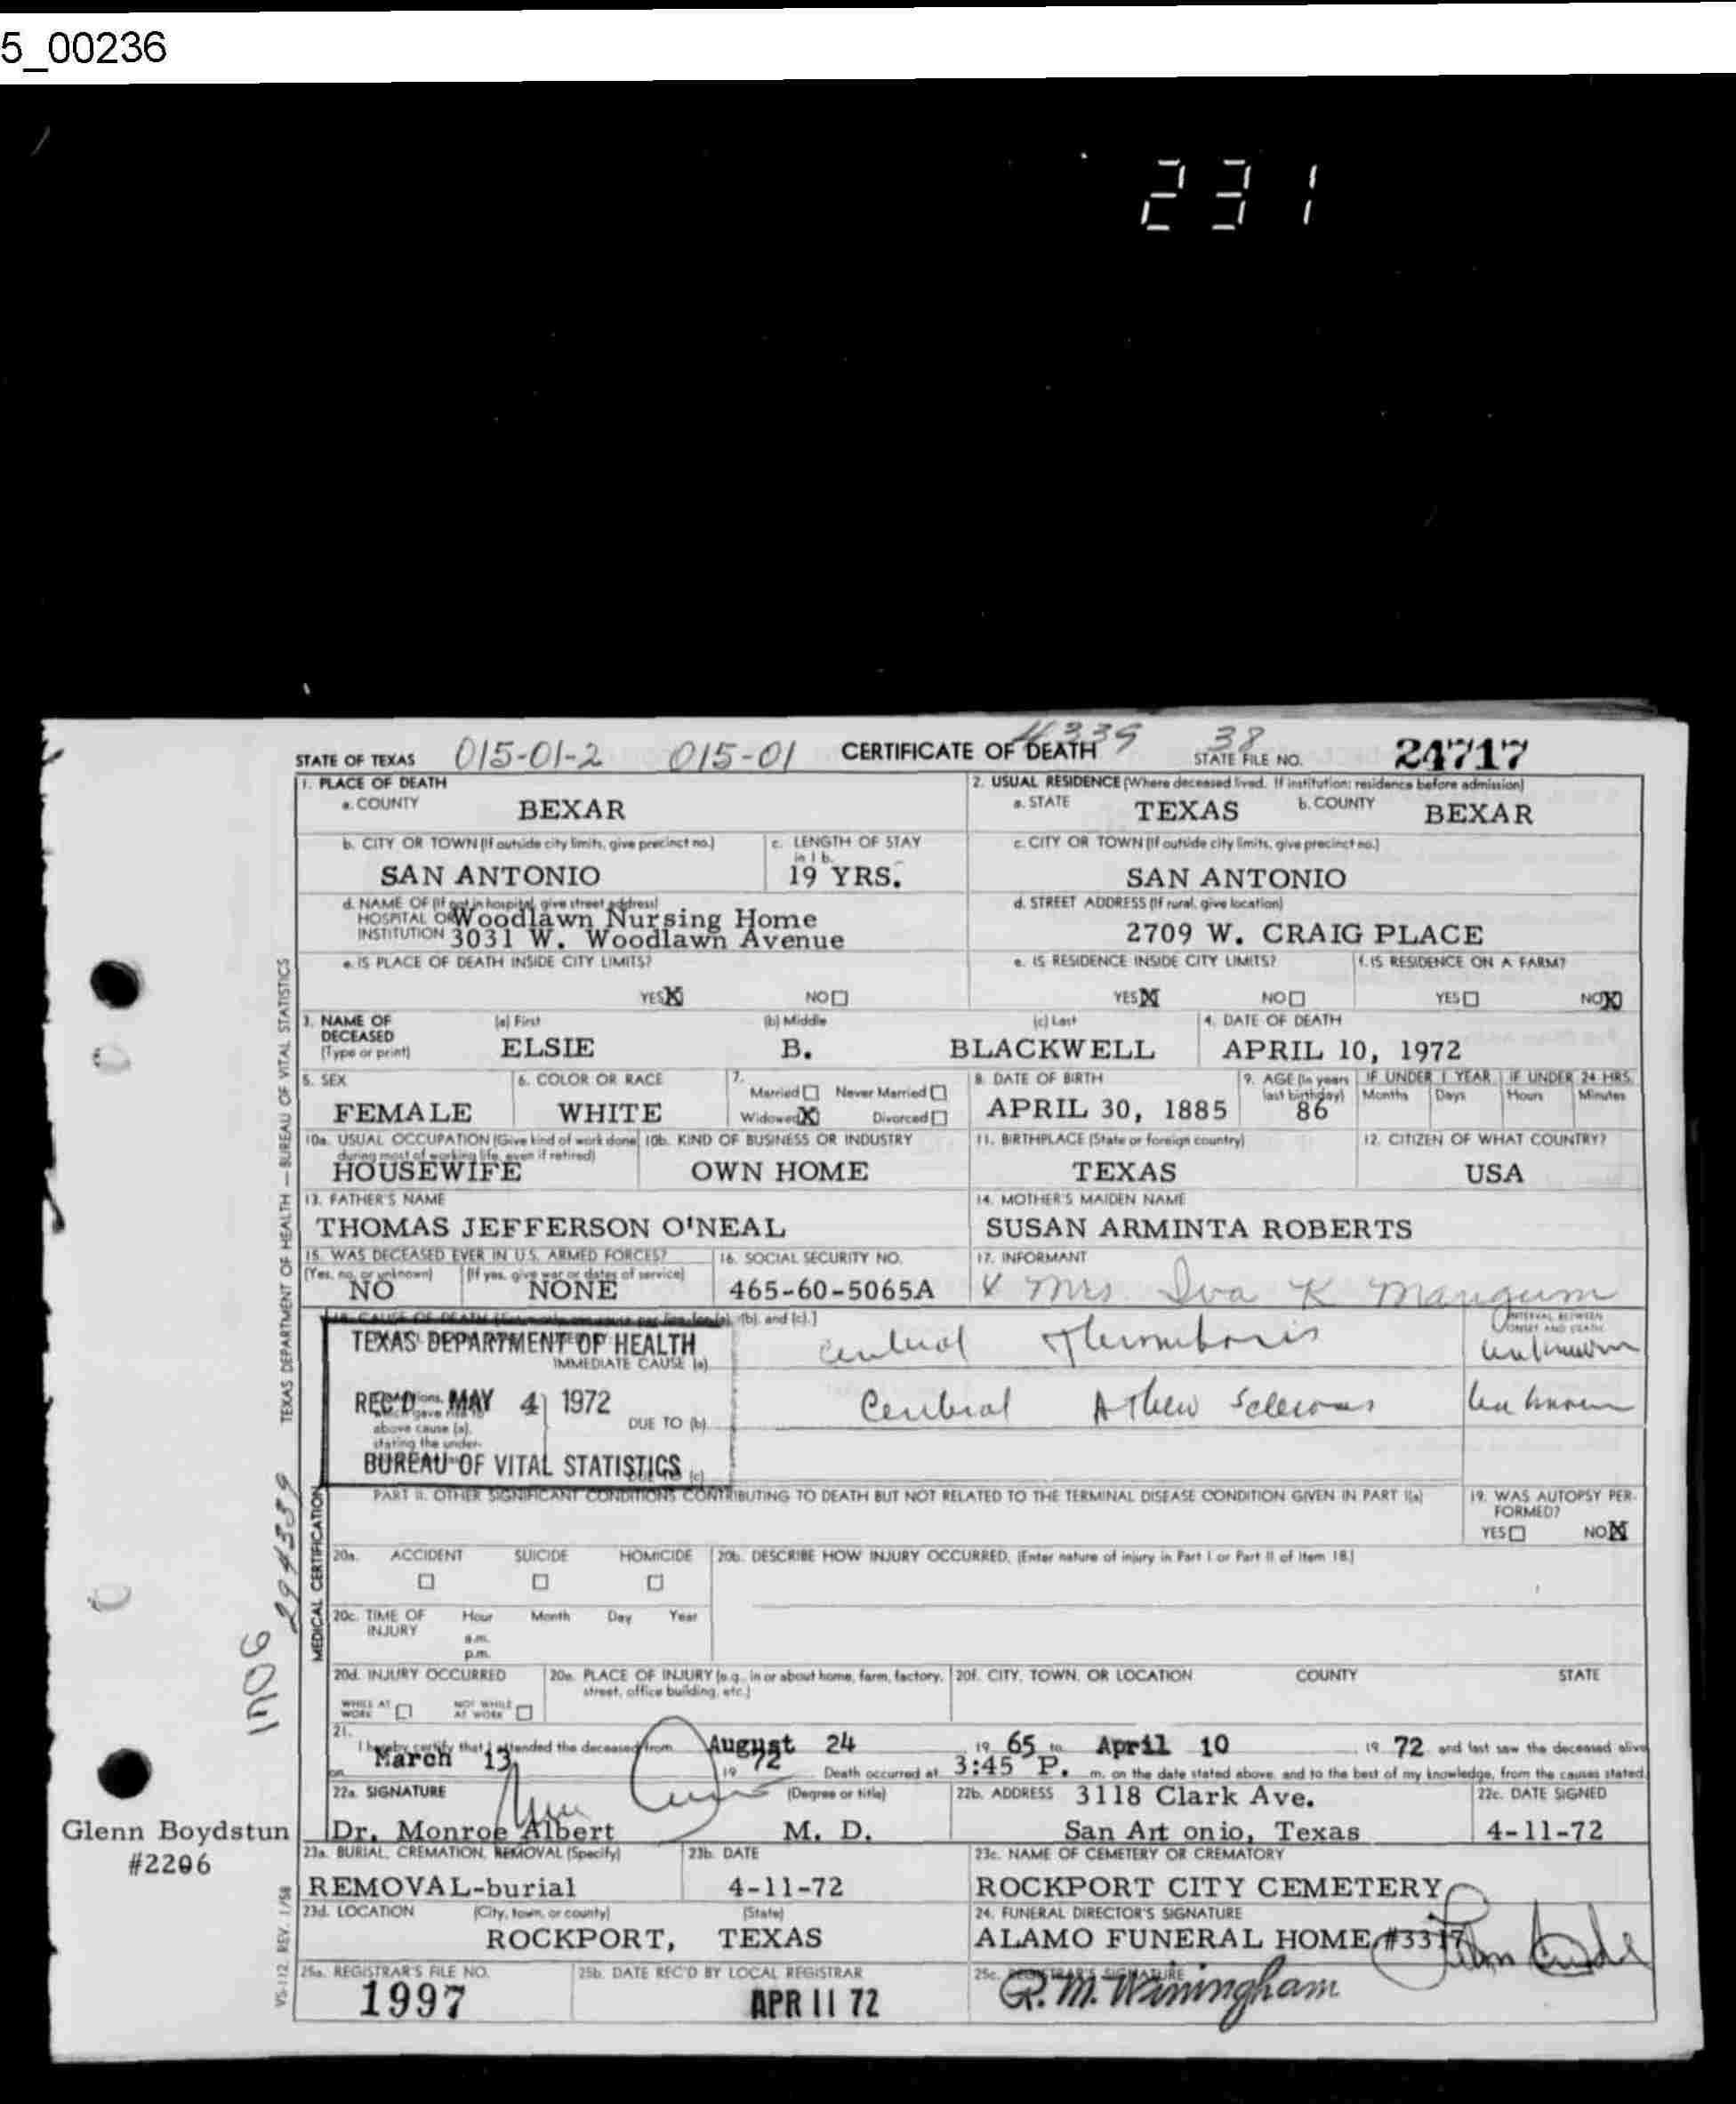 5_00236
231
4339 38
STATE OF TEXAS 015-01-2 015-01 CERTIFICATE OF DEATH STATE FILE NO. 24717
1. PLACE OF DEATH
a. COUNTY BEXAR
2. USUAL RESIDENCE (Where deceased lived. If institution: residence before admission)
a. STATE TEXAS b. COUNTY BEXAR
b. CITY OR TOWN (If outside city limits, give precinct no.) SAN ANTONIO
c. LENGTH OF STAY in 1 b. 19 YRS.
c. CITY OR TOWN (If outside city limits, give precinct no.) SAN ANTONIO
d. NAME OF (If not in hospital, give street address)
HOSPITAL OR Woodlawn Nursing Home
INSTITUTION 3031 W. Woodlawn Avenue
d. STREET ADDRESS (If rural, give location) 2709 W. CRAIG PLACE
e. IS PLACE OF DEATH INSIDE CITY LIMITS?
YES X NO
e. IS RESIDENCE INSIDE CITY LIMITS?
YES X NO
f. IS RESIDENCE ON A FARM?
YES NO X
3. NAME OF DECEASED (Type or print)
(a) First ELSIE
(b) Middle B.
(c) Last BLACKWELL
4. DATE OF DEATH APRIL 10, 1972
5. SEX FEMALE
6. COLOR OR RACE WHITE
7. Married Never Married
Widowed X Divorced
8. DATE OF BIRTH APRIL 30, 1885
9. AGE (In years last birthday) 86
IF UNDER 1 YEAR Months Days
IF UNDER 24 HRS. Hours Minutes
10a. USUAL OCCUPATION (Give kind of work done during most of working life, even if retired) HOUSEWIFE
10b. KIND OF BUSINESS OR INDUSTRY OWN HOME
11. BIRTHPLACE (State or foreign country) TEXAS
12. CITIZEN OF WHAT COUNTRY? USA
13. FATHER'S NAME THOMAS JEFFERSON O'NEAL
14. MOTHER'S MAIDEN NAME SUSAN ARMINTA ROBERTS
15. WAS DECEASED EVER IN U.S. ARMED FORCES?
(Yes, no, or unknown) NO
(If yes, give war or dates of service) NONE
16. SOCIAL SECURITY NO. 465-60-5065A
17. INFORMANT X Mrs Iva K Mangum
18. CAUSE OF DEATH (b), and (c).]
TEXAS DEPARTMENT OF HEALTH
IMMEDIATE CAUSE (a) Thrombosis
INTERVAL BETWEEN ONSET AND DEATH
unknown
REC'D MAY 4 1972
above cause (a),
stating the under-
DUE TO (b) unknown
BUREAU OF VITAL STATISTICS (c)
PART II. OTHER SIGNIFICANT CONDITIONS CONTRIBUTING TO DEATH BUT NOT RELATED TO THE TERMINAL DISEASE CONDITION GIVEN IN PART I(a)
19. WAS AUTOPSY PERFORMED?
YES NO X
20a. ACCIDENT SUICIDE HOMICIDE
20b. DESCRIBE HOW INJURY OCCURRED. (Enter nature of injury in Part I or Part II of Item 18.)
20c. TIME OF INJURY Hour Month Day Year
a.m.
p.m.
20d. INJURY OCCURRED
WHILE AT WORK NOT WHILE AT WORK
20e. PLACE OF INJURY (e.g., in or about home, farm, factory, street, office building, etc.)
20f. CITY, TOWN, OR LOCATION COUNTY STATE
21. I hereby certify that I attended the deceased from August 24 19 65 to April 10 19 72 and last saw the deceased alive
on March 13, 19 72 Death occurred at 3:45 P. m. on the date stated above, and to the best of my knowledge, from the causes stated.
22a. SIGNATURE (Degree or title)
Dr. Monroe Albert M. D.
22b. ADDRESS 3118 Clark Ave.
San Art onio, Texas
22c. DATE SIGNED 4-11-72
23a. BURIAL, CREMATION, REMOVAL (Specify) REMOVAL-burial
23b. DATE 4-11-72
23c. NAME OF CEMETERY OR CREMATORY ROCKPORT CITY CEMETERY
23d. LOCATION (City, town, or county) (State)
ROCKPORT, TEXAS
24. FUNERAL DIRECTOR'S SIGNATURE
ALAMO FUNERAL HOME #3317
25a. REGISTRAR'S FILE NO. 1997
25b. DATE REC'D BY LOCAL REGISTRAR APR 11 72
25c. REGISTRAR'S SIGNATURE R. M. Winingham
TEXAS DEPARTMENT OF HEALTH — BUREAU OF VITAL STATISTICS
MEDICAL CERTIFICATION
VS-112 REV. 1/58
Glenn Boydstun
#2206